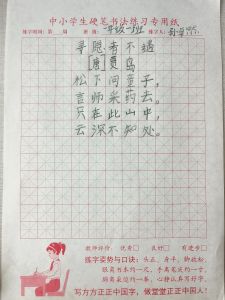 中小学生硬笔书法练习专用纸
练字时间：第 周 班级：一年级一班 练字人：
寻隐者不遇
[唐]贾岛
松下问童子，
言师采药去。
只在此山中，
云深不知处。
教师评价： 优秀□ 良好□ 有进步□
练字姿势与口诀：头正、身平、胸放松，
眼离书本约一尺，手离笔尖约一寸，
写方方正正中国字，做堂堂正正中国人！